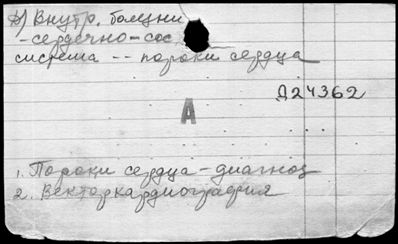 А) Внутр. болезни
-сердечно-сос
система -- пороки сердца
Д24362
А
1. Пороки сердца - диагноз
2. Векторкардиография